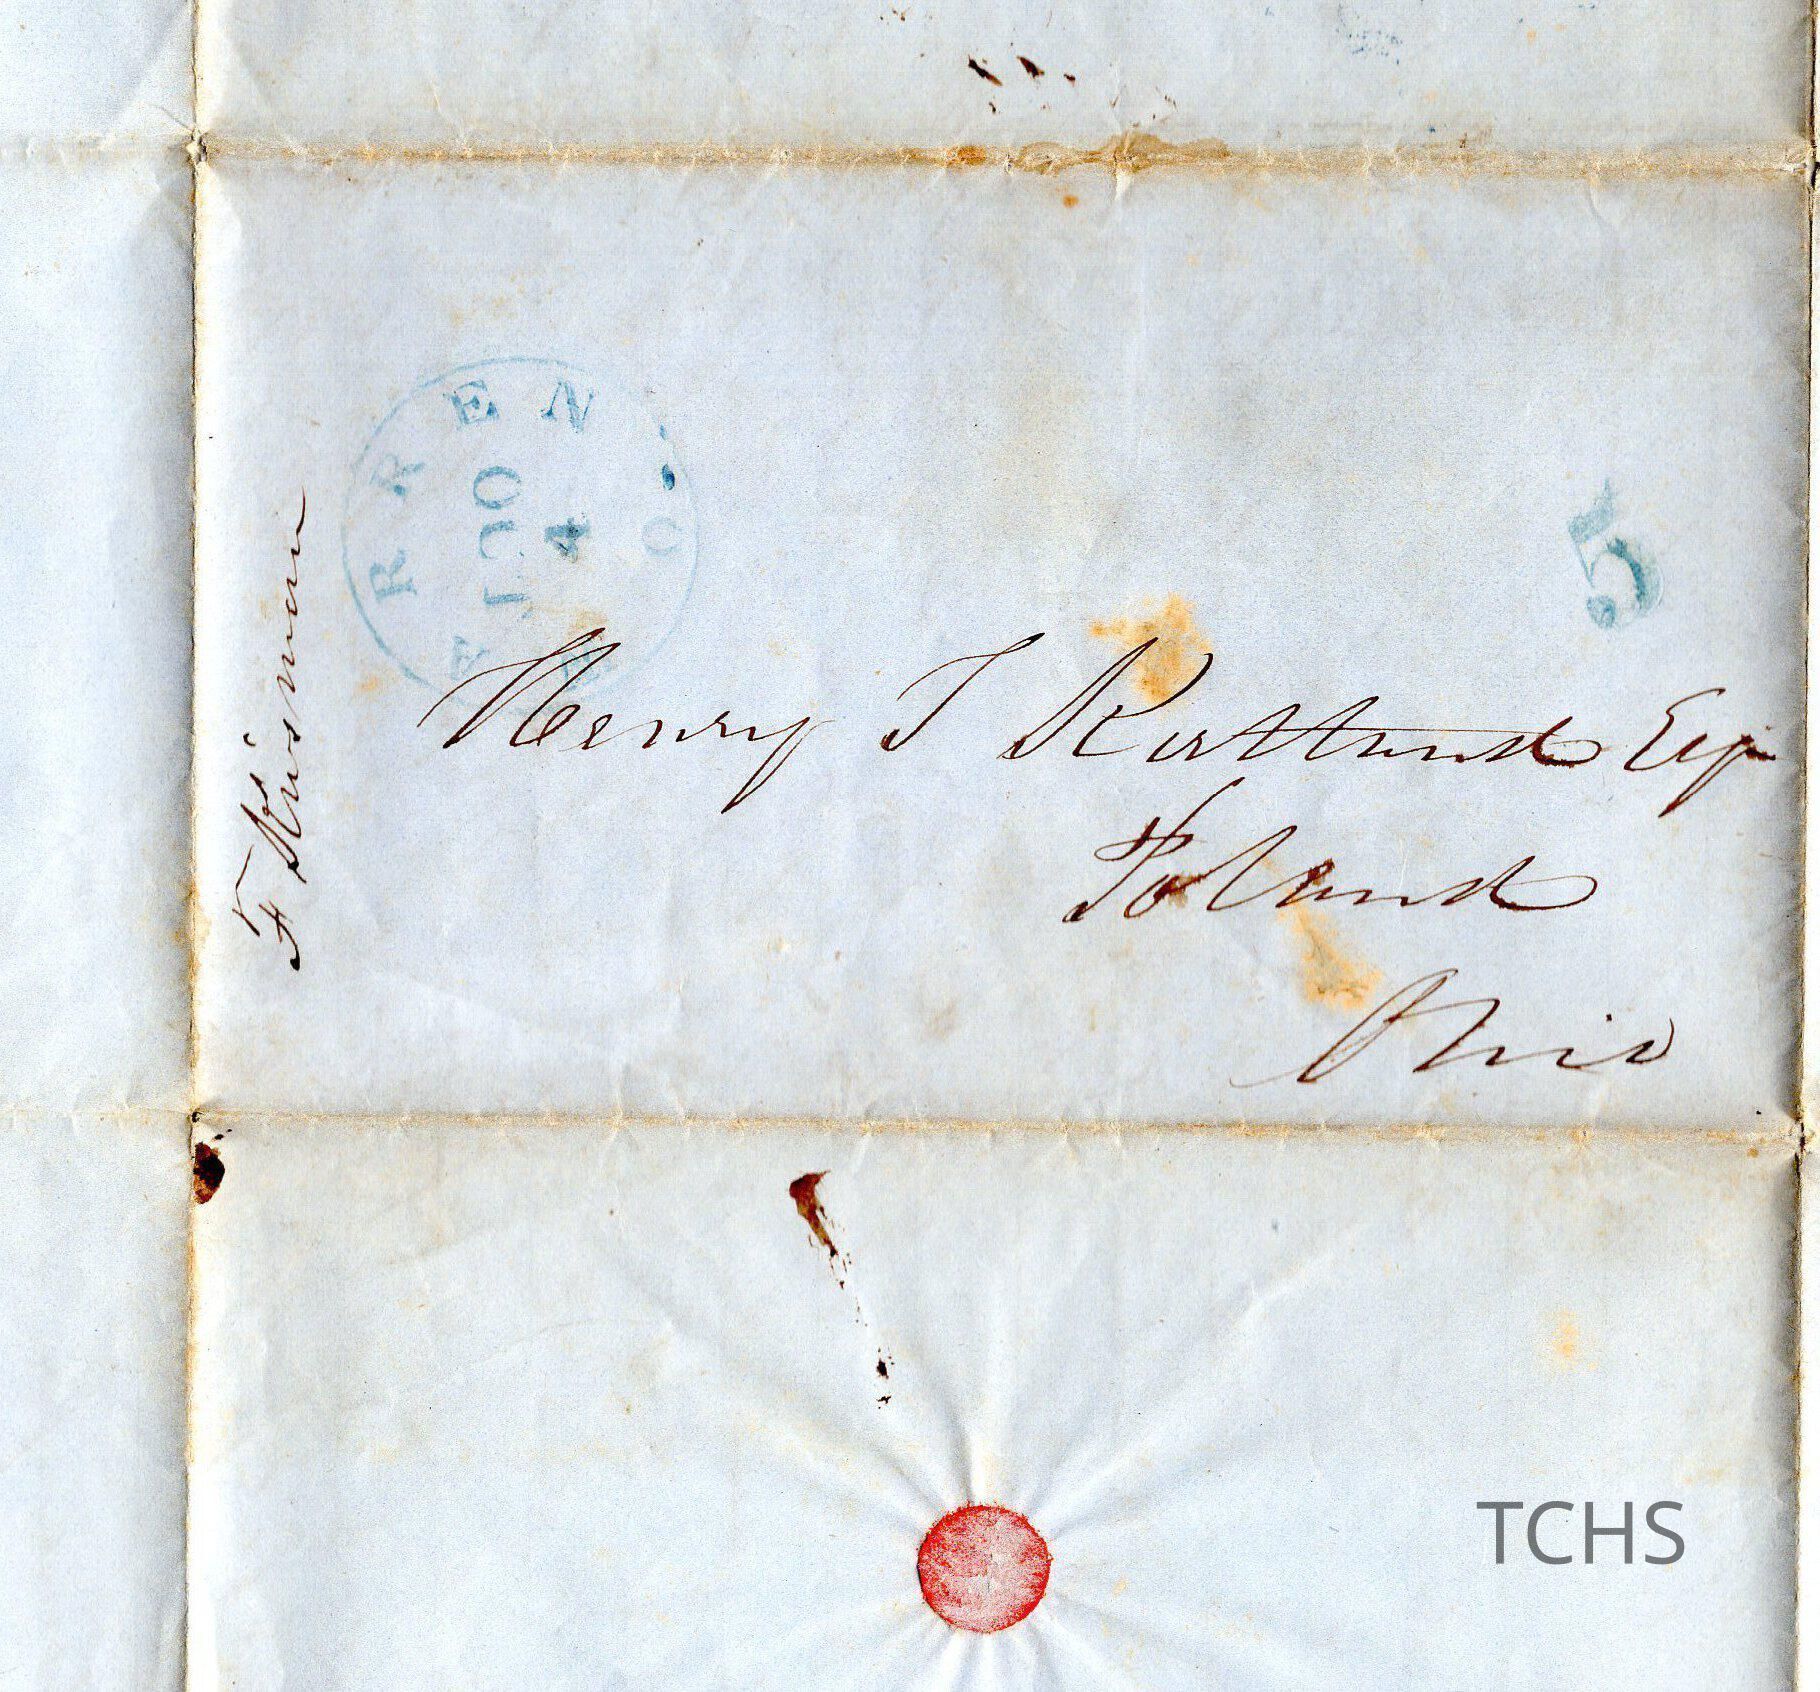 WARREN O.
OCT
4
5
F Kinsman
Henry T Kirtland Esq
Poland
Ohio
TCHS